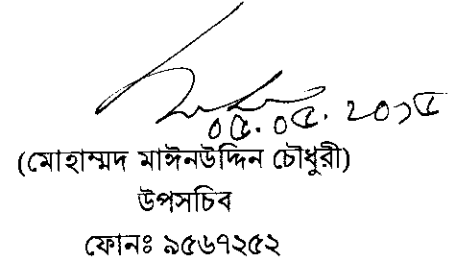 ০৫.০৫.২০১৫
(মোহাম্মদ মাঈনউদ্দিন চৌধুরী)
উপসচিব
ফোনঃ ৯৫৬৭২৫২